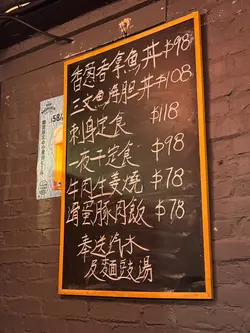 香葱吞拿魚丼 $98
三文魚海胆丼 $108
刺身定食 $118
一夜干定食 $98
牛肉生姜燒 $78
滑蛋豚肉飯 $78
奉送汽水
及麵豉湯